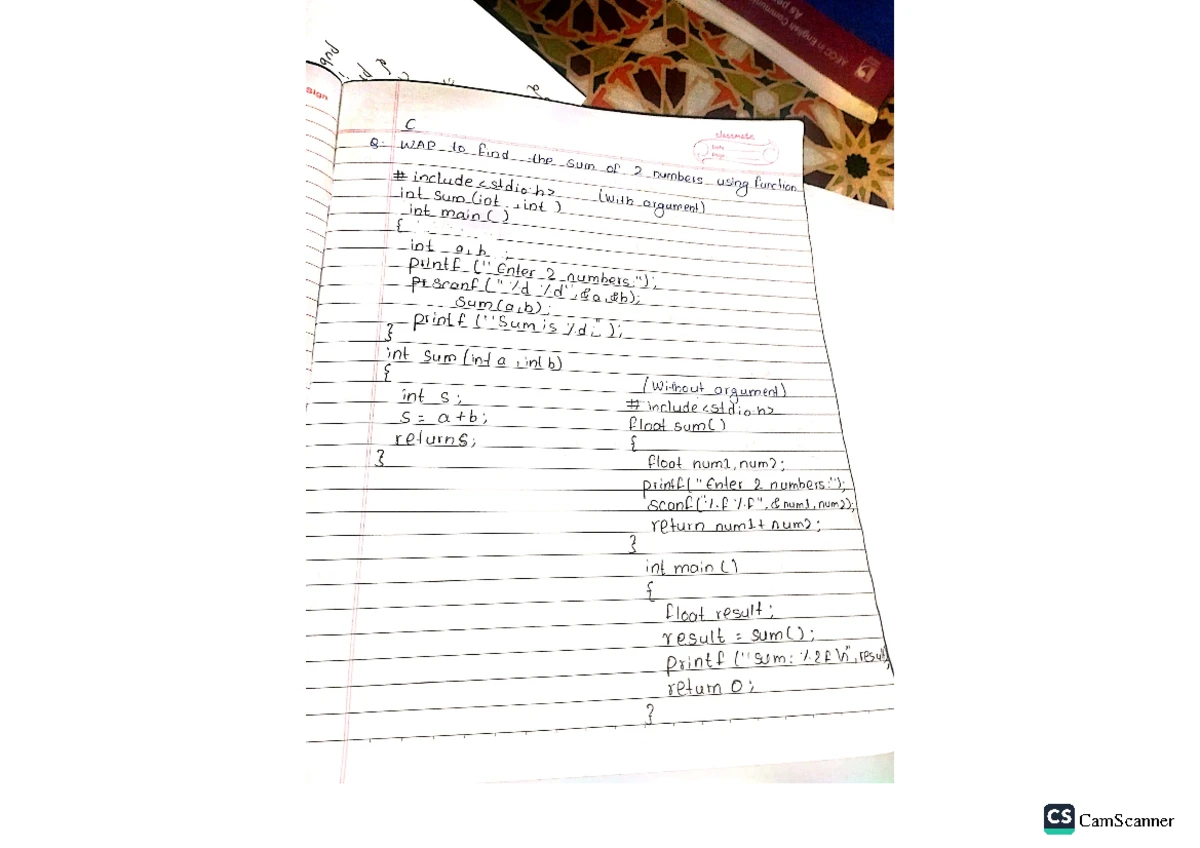 C
Q. WAP to find the sum of 2 numbers using function
(with argument)
# include <stdio.h>
int sum (int , int )
int main ( )
{
int a, b ;
printf ("Enter 2 numbers:");
scanf ("%d %d", &a, &b);
sum(a,b);
printf ("Sum is %d;");
}
int sum (int a , int b)
{
int s ;
s = a + b ;
return s;
}
(Without argument)
# include <stdio.h>
float sum( )
{
float num1, num2 ;
printf("Enter 2 numbers:");
scanf ("%f %f", & num1, num2);
return num1 + num2 ;
}
int main ( )
{
float result ;
result = sum( ) ;
printf ("Sum: %.2f \n", result);
return 0 ;
}
classmate
Date
Page
Sign
AECC in English Communi
As pe
CS CamScanner